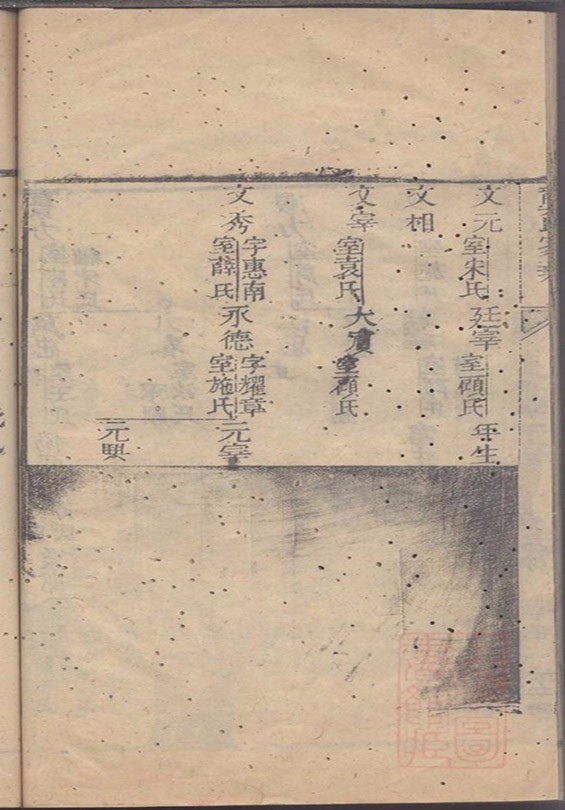 文元 室宋氏 廷宰 室顧氏 年生
文相
文宰 室袁氏 大賓 室顧氏
文秀 字惠南 室薛氏 永德 字耀章 室施氏 元宰
元興